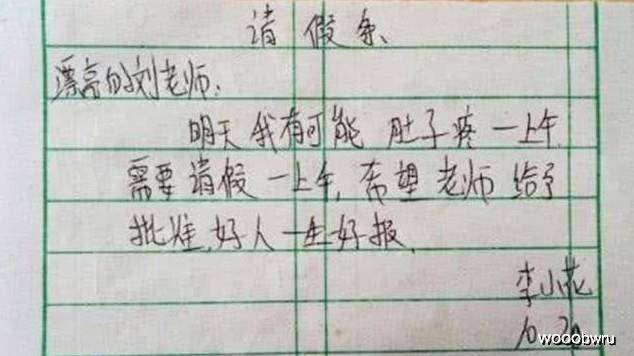 请假条
漂亮的刘老师:
明天我有可能肚子疼一上午
需要请假一上午,希望老师给予
批准,好人一生好报,
李小花
10.20
wooobwru